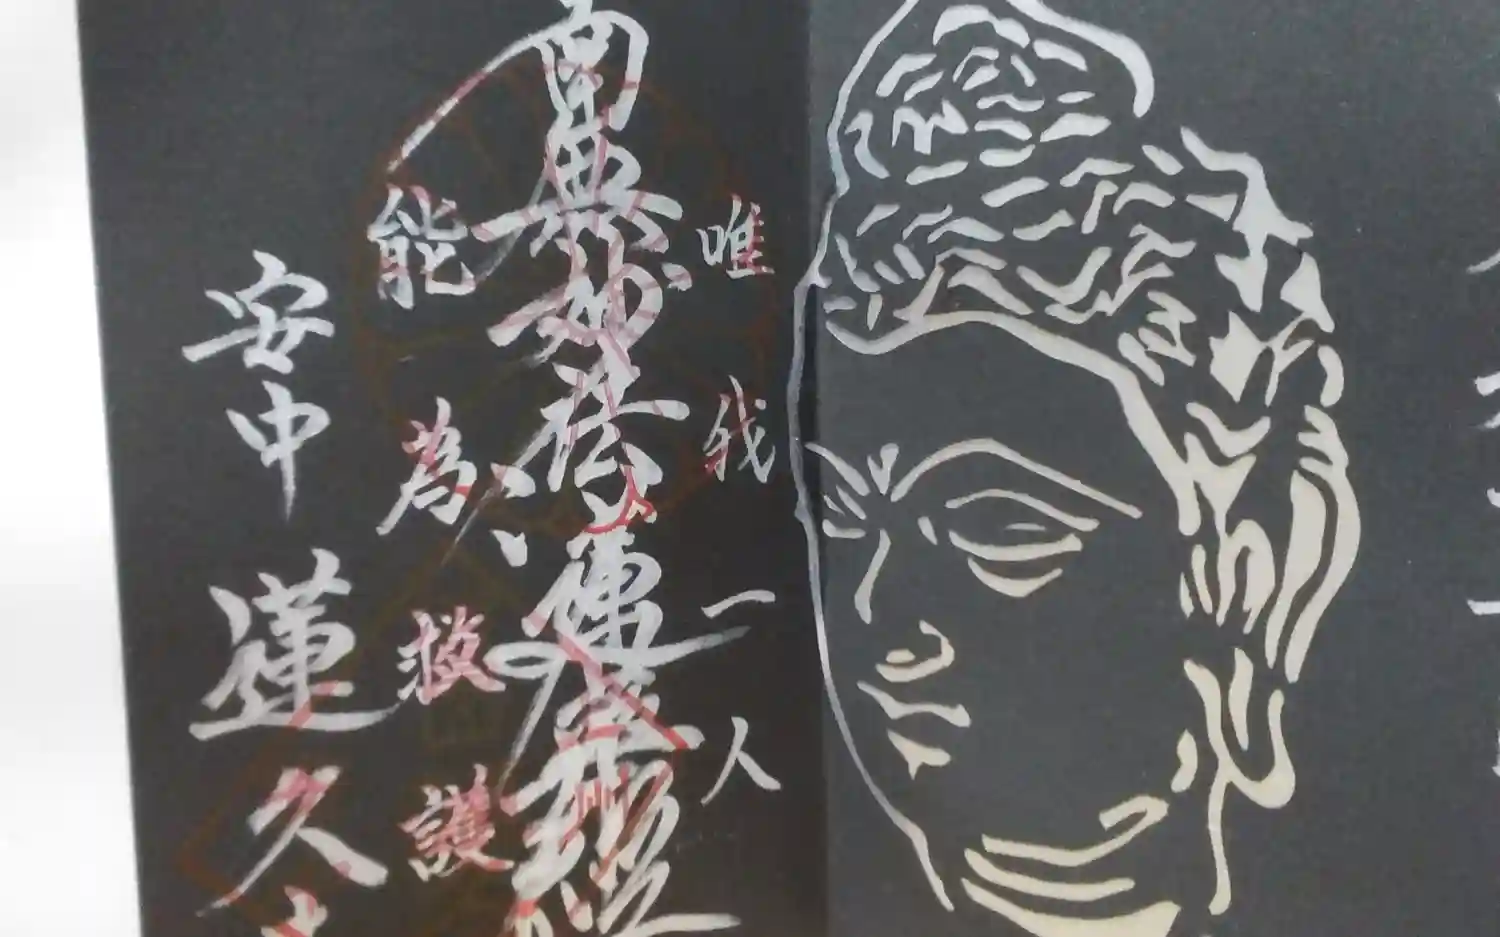 唯我一人
南無妙法蓮華経
能為救護
安中 蓮久